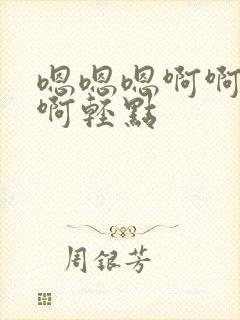 嗯嗯嗯啊啊
啊轻點
周银芳